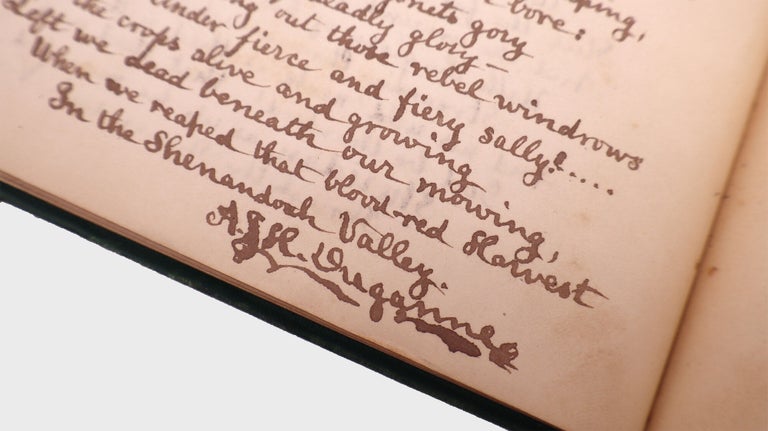 bore:
gory
deadly glory —
out those rebel windrows
Under fierce and fiery sally!....
the crops alive and growing
Left we dead beneath our mowing,
When we reaped that blood-red Harvest
In the Shenandoah Valley.
A.J.H. Duganne